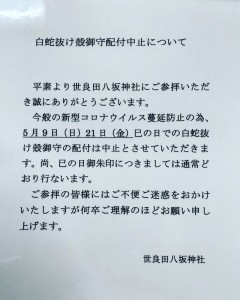 白蛇抜け殻御守配付中止について
平素より世良田八坂神社にご参拝いただ
き誠にありがとうございます。
今般の新型コロナウイルス蔓延防止の為、
５月９日（日）２１日（金）巳の日での白蛇抜
け殻御守の配付は中止とさせていただきま
す。尚、巳の日御朱印につきましては通常ど
おり行ないます。
ご参拝の皆様にはご不便ご迷惑をおかけ
いたしますが何卒ご理解のほどお願い申し
上げます。
世良田八坂神社